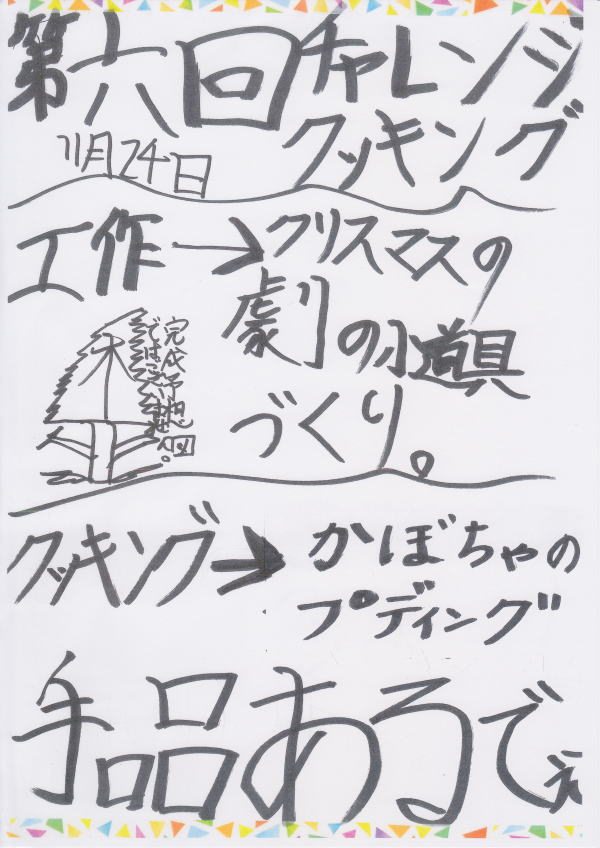 第六回チャレンジ
クッキング
11月24日
工作→クリスマスの
劇の小道具
づくり。
木
完成予想図
ではございません。
クッキング→かぼちゃの
プディング
手品あるでぇ